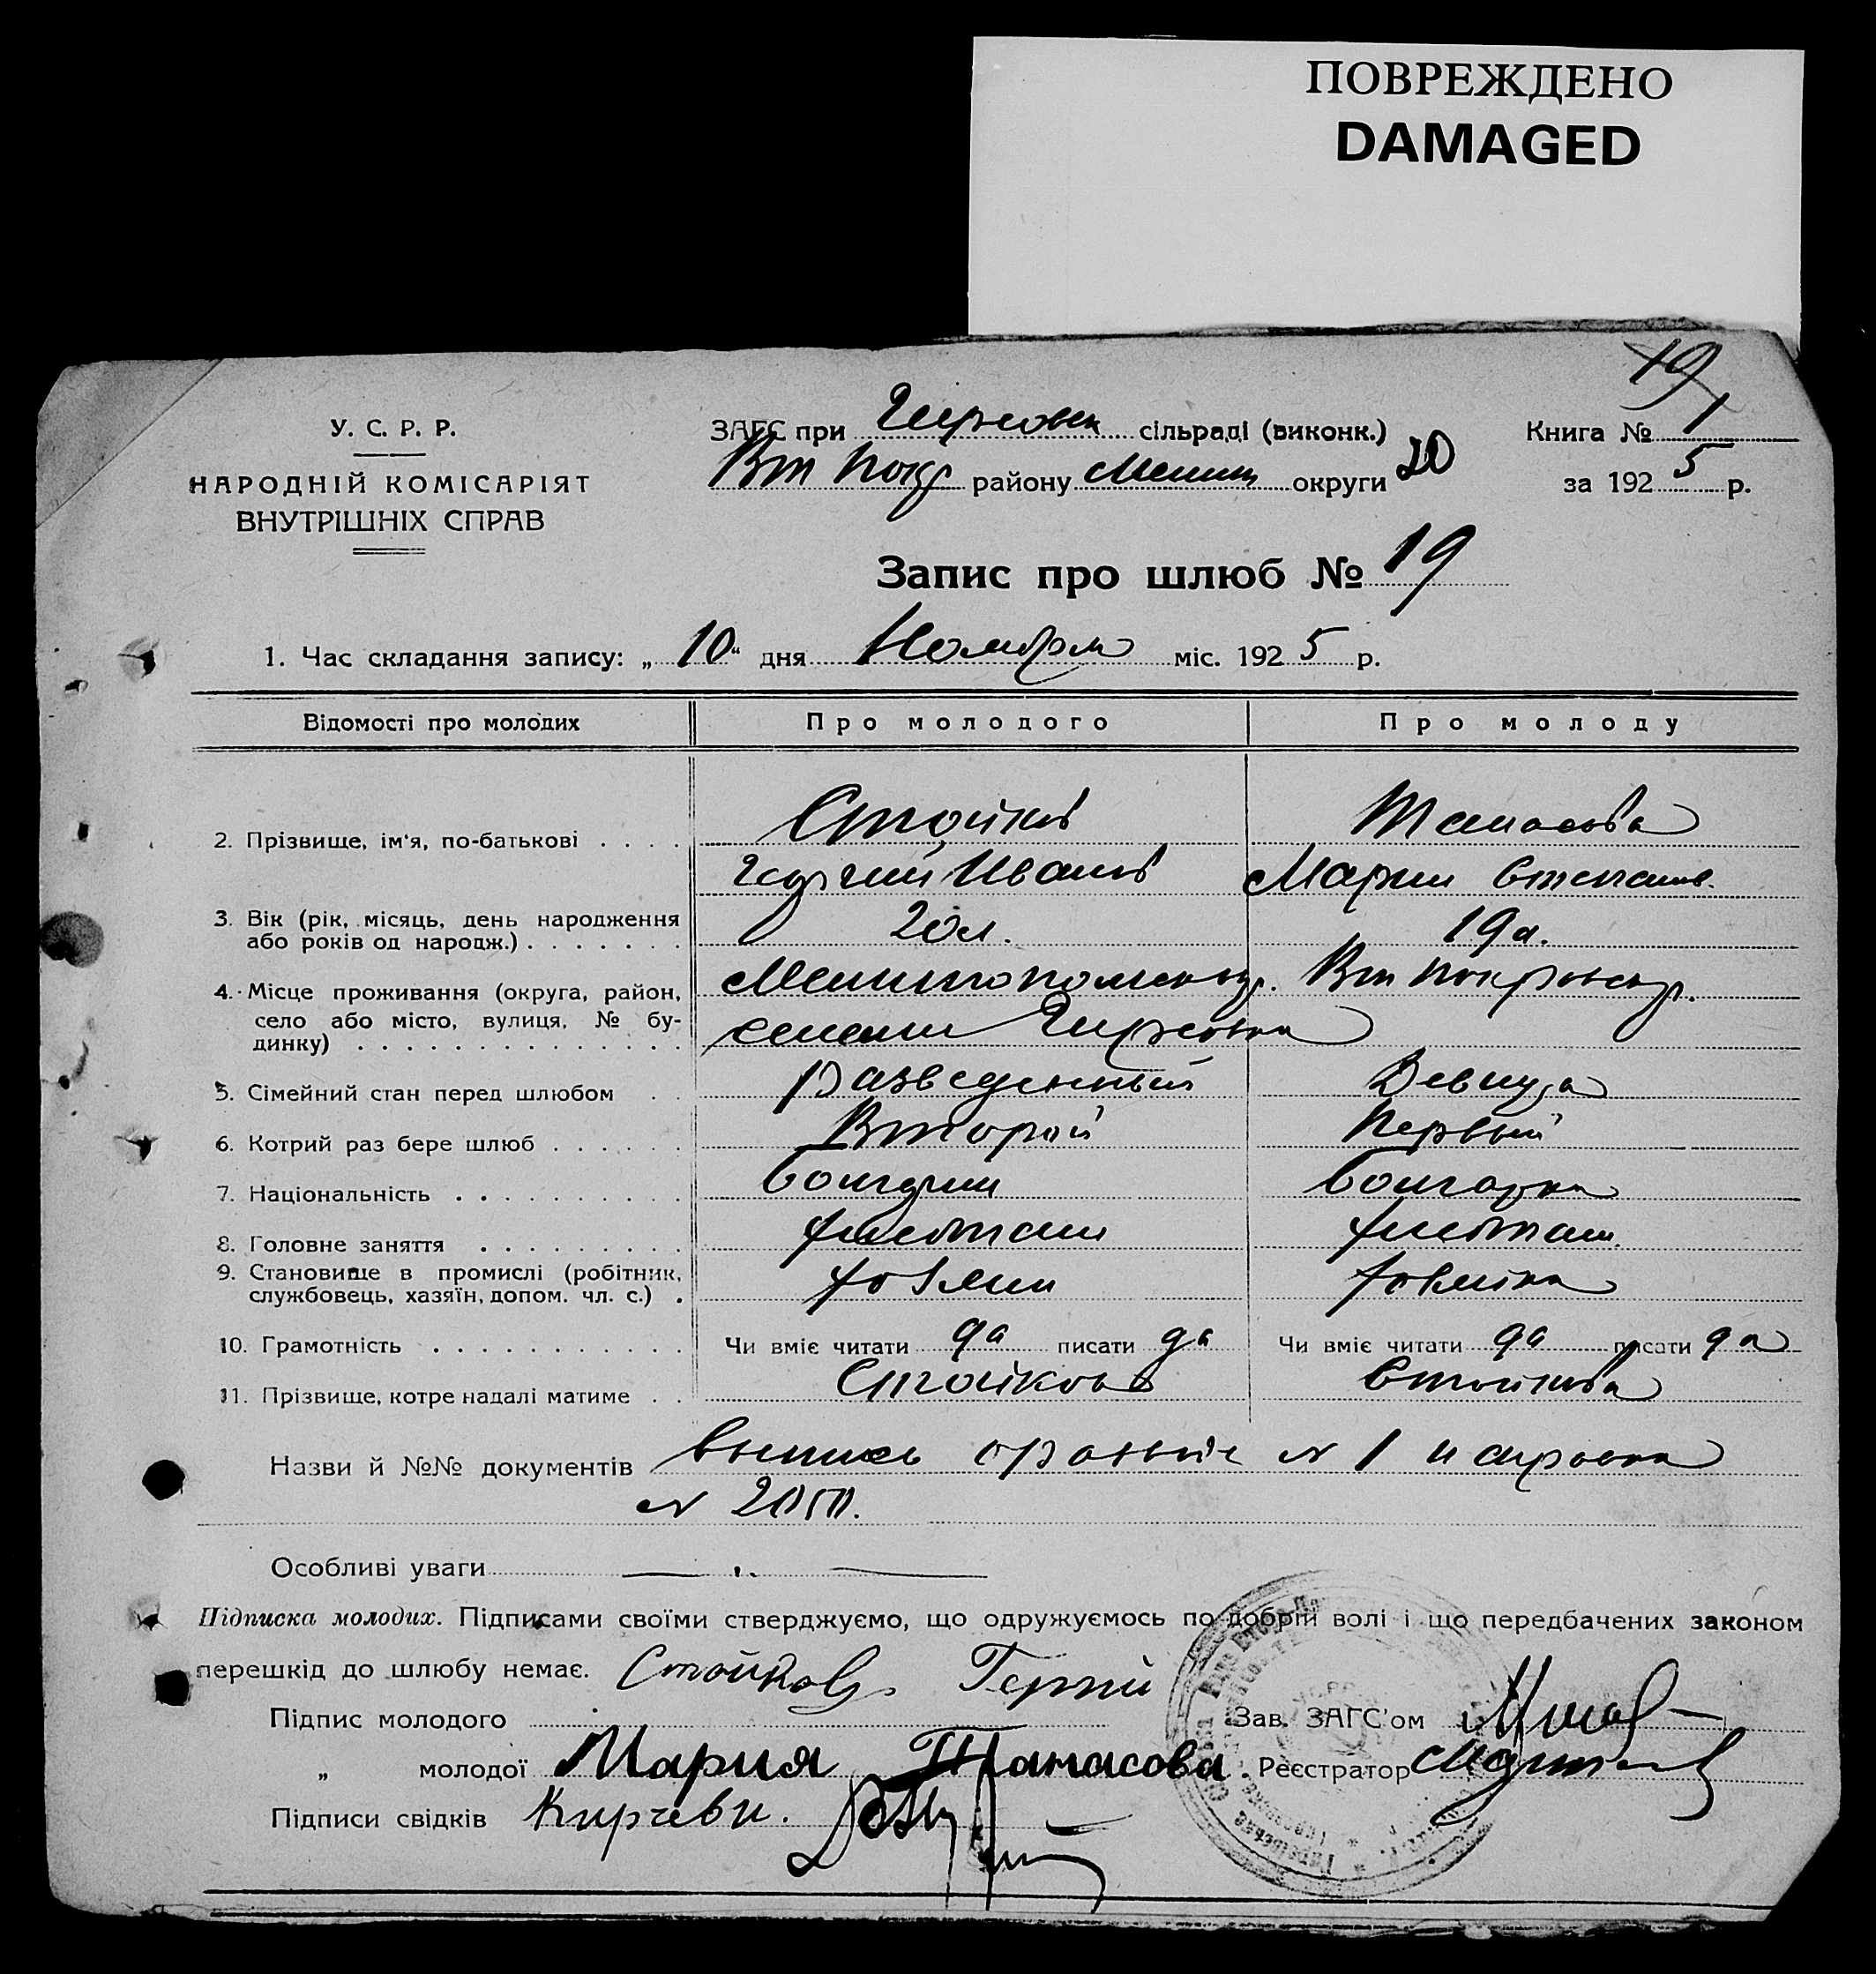 ПОВРЕЖДЕНО
DAMAGED
19
У. С. Р. Р.
НАРОДНІЙ КОМІСАРІЯТ
ВНУТРІШНІХ СПРАВ
ЗАГС при Гирсовск сільраді (виконк.)
Вт Покр району Мелит округи 20
Книга № 1
за 1925 р.
Запис про шлюб № 19
1. Час складання запису: „10" дня Ноября міс. 1925 р.
Відомості про молодих Про молодого Про молоду
2. Прізвище, ім'я, по-батькові . . . . Стойков Танасова
Георгий Иванов Мария Степанов.
3. Вік (рік, місяць, день народження
або років од народж.) . . . . . . . 20 л. 19 л.
4. Місце проживання (округа, район,
село або місто, вулиця, № бу-
динку) . . . . . . . . . . . . . .
Мелитопольск р. Вт Покровск р.
селении Гирсовка
5. Сімейний стан перед шлюбом . . Разведенный Девица
6. Котрий раз бере шлюб . . . . . . Второй Первый
7. Національність . . . . . . . . . . болгарин болгарка
8. Головне заняття . . . . . . . . . хлебопаш хлебопаш.
9. Становище в промислі (робітник,
службовець, хазяїн, допом. чл. с.) . хозяин хозяйка
10. Грамотність . . . . . . . . . . . Чи вміє читати да писати да Чи вміє читати да писати да
11. Прізвище, котре надалі матиме . . Стойков Стойкова
Назви й №№ документів выпись о № 1 и справка
№ 2050.
Особливі уваги
Підписка молодих. Підписами своїми стверджуємо, що одружуємось по добрій волі і що передбачених законом
перешкід до шлюбу немає. Стойков
Підпис молодого Зав. ЗАГС'ом
„ молодої Мария Танасова. Реєстратор
Підписи свідків Кирчеви.